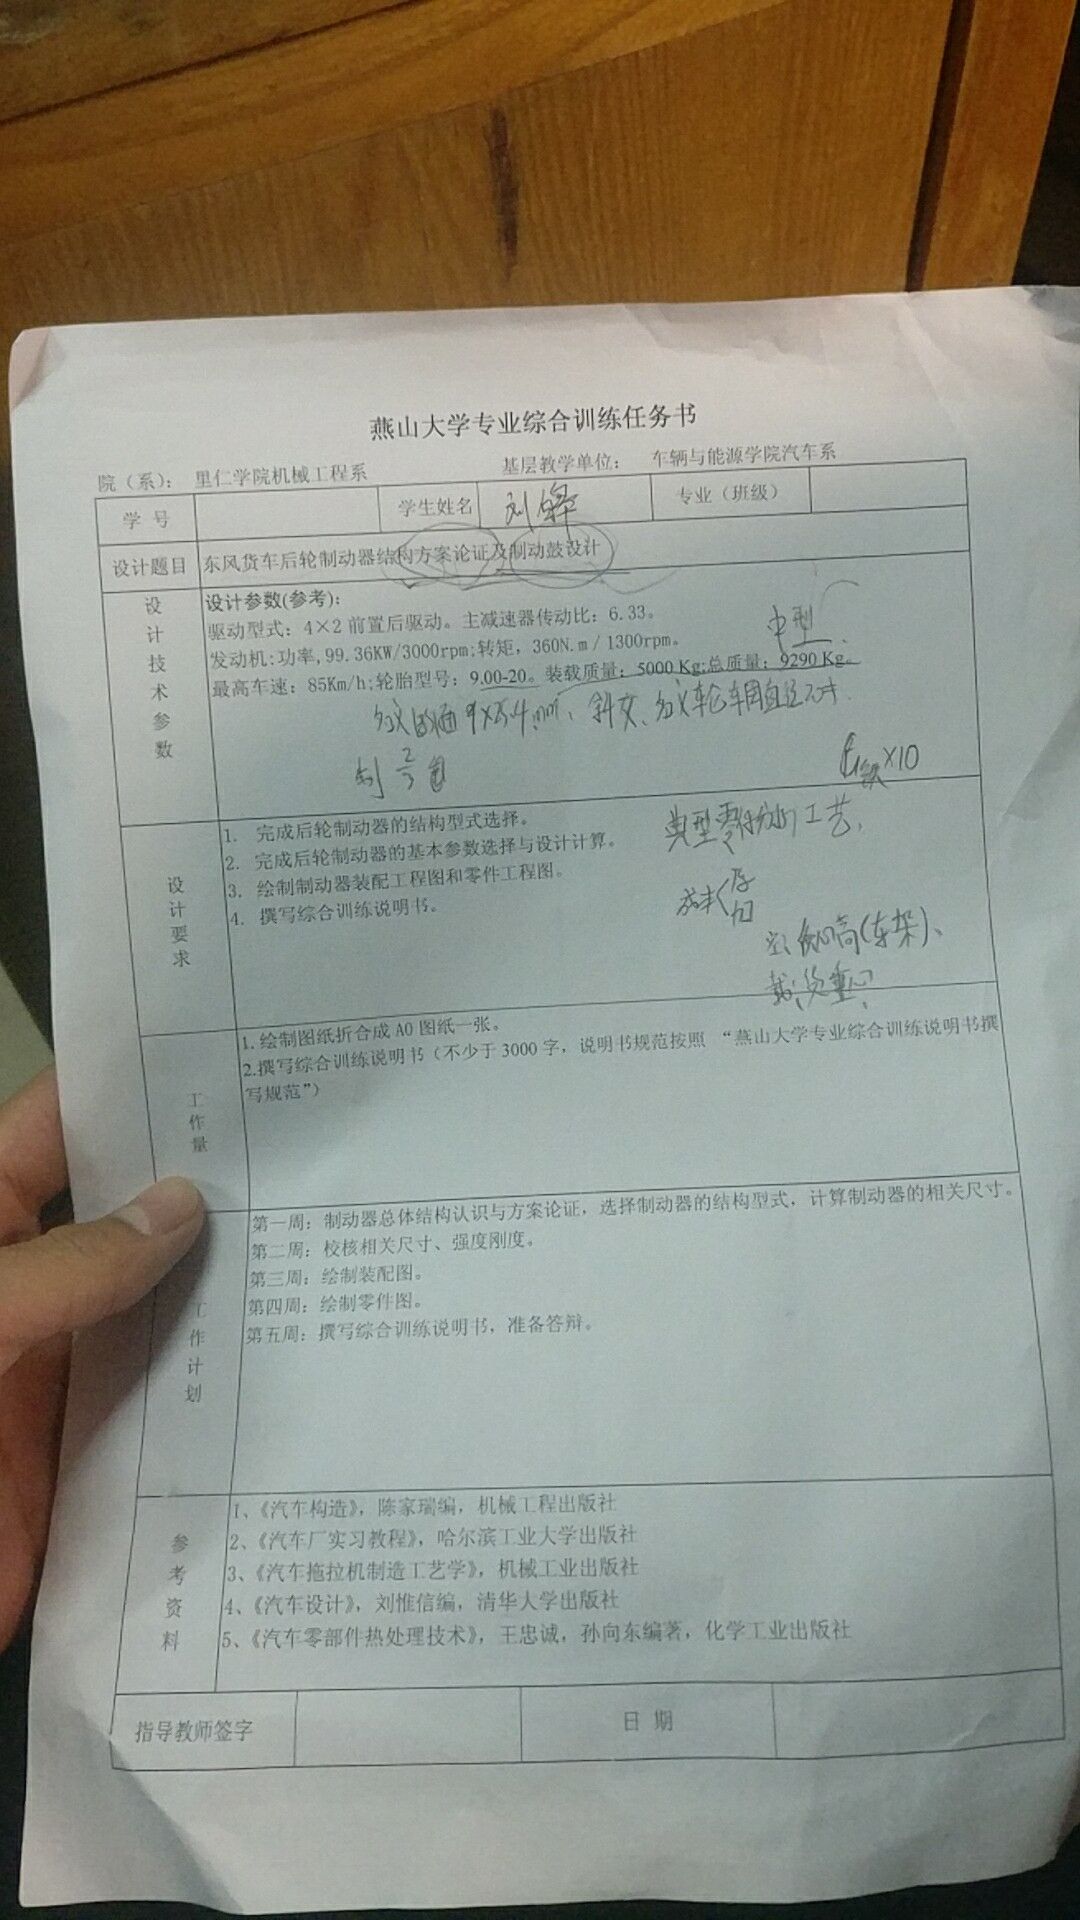 燕山大学专业综合训练任务书
院（系）： 里仁学院机械工程系 基层教学单位： 车辆与能源学院汽车系
学 号 学生姓名 刘 专业（班级）
设计题目 东风货车后轮制动器结构方案论证及制动鼓设计
设计技术参数
设计参数(参考)：
驱动型式：4×2 前置后驱动。主减速器传动比：6.33。
中型
发动机:功率,99.36KW/3000rpm;转矩，360N.m / 1300rpm。
最高车速：85Km/h;轮胎型号：9.00-20。装载质量：5000 Kg;总质量：9290 Kg。
名义 9×25.4mm、斜交、名义轮辋直径
×10
设计要求
1. 完成后轮制动器的结构型式选择。
2. 完成后轮制动器的基本参数选择与设计计算。
3. 绘制制动器装配工程图和零件工程图。
4. 撰写综合训练说明书。
典型零件分析工艺,
高(车架)、
工作量
1.绘制图纸折合成 A0 图纸一张。
2.撰写综合训练说明书（不少于 3000 字，说明书规范按照 “燕山大学专业综合训练说明书撰
写规范”）
工作计划
第一周：制动器总体结构认识与方案论证，选择制动器的结构型式，计算制动器的相关尺寸。
第二周：校核相关尺寸、强度刚度。
第三周：绘制装配图。
第四周：绘制零件图。
第五周：撰写综合训练说明书，准备答辩。
参考资料
1、《汽车构造》，陈家瑞编，机械工程出版社
2、《汽车厂实习教程》，哈尔滨工业大学出版社
3、《汽车拖拉机制造工艺学》，机械工业出版社
4、《汽车设计》，刘惟信编，清华大学出版社
5、《汽车零部件热处理技术》，王忠诚，孙向东编著，化学工业出版社
指导教师签字 日 期